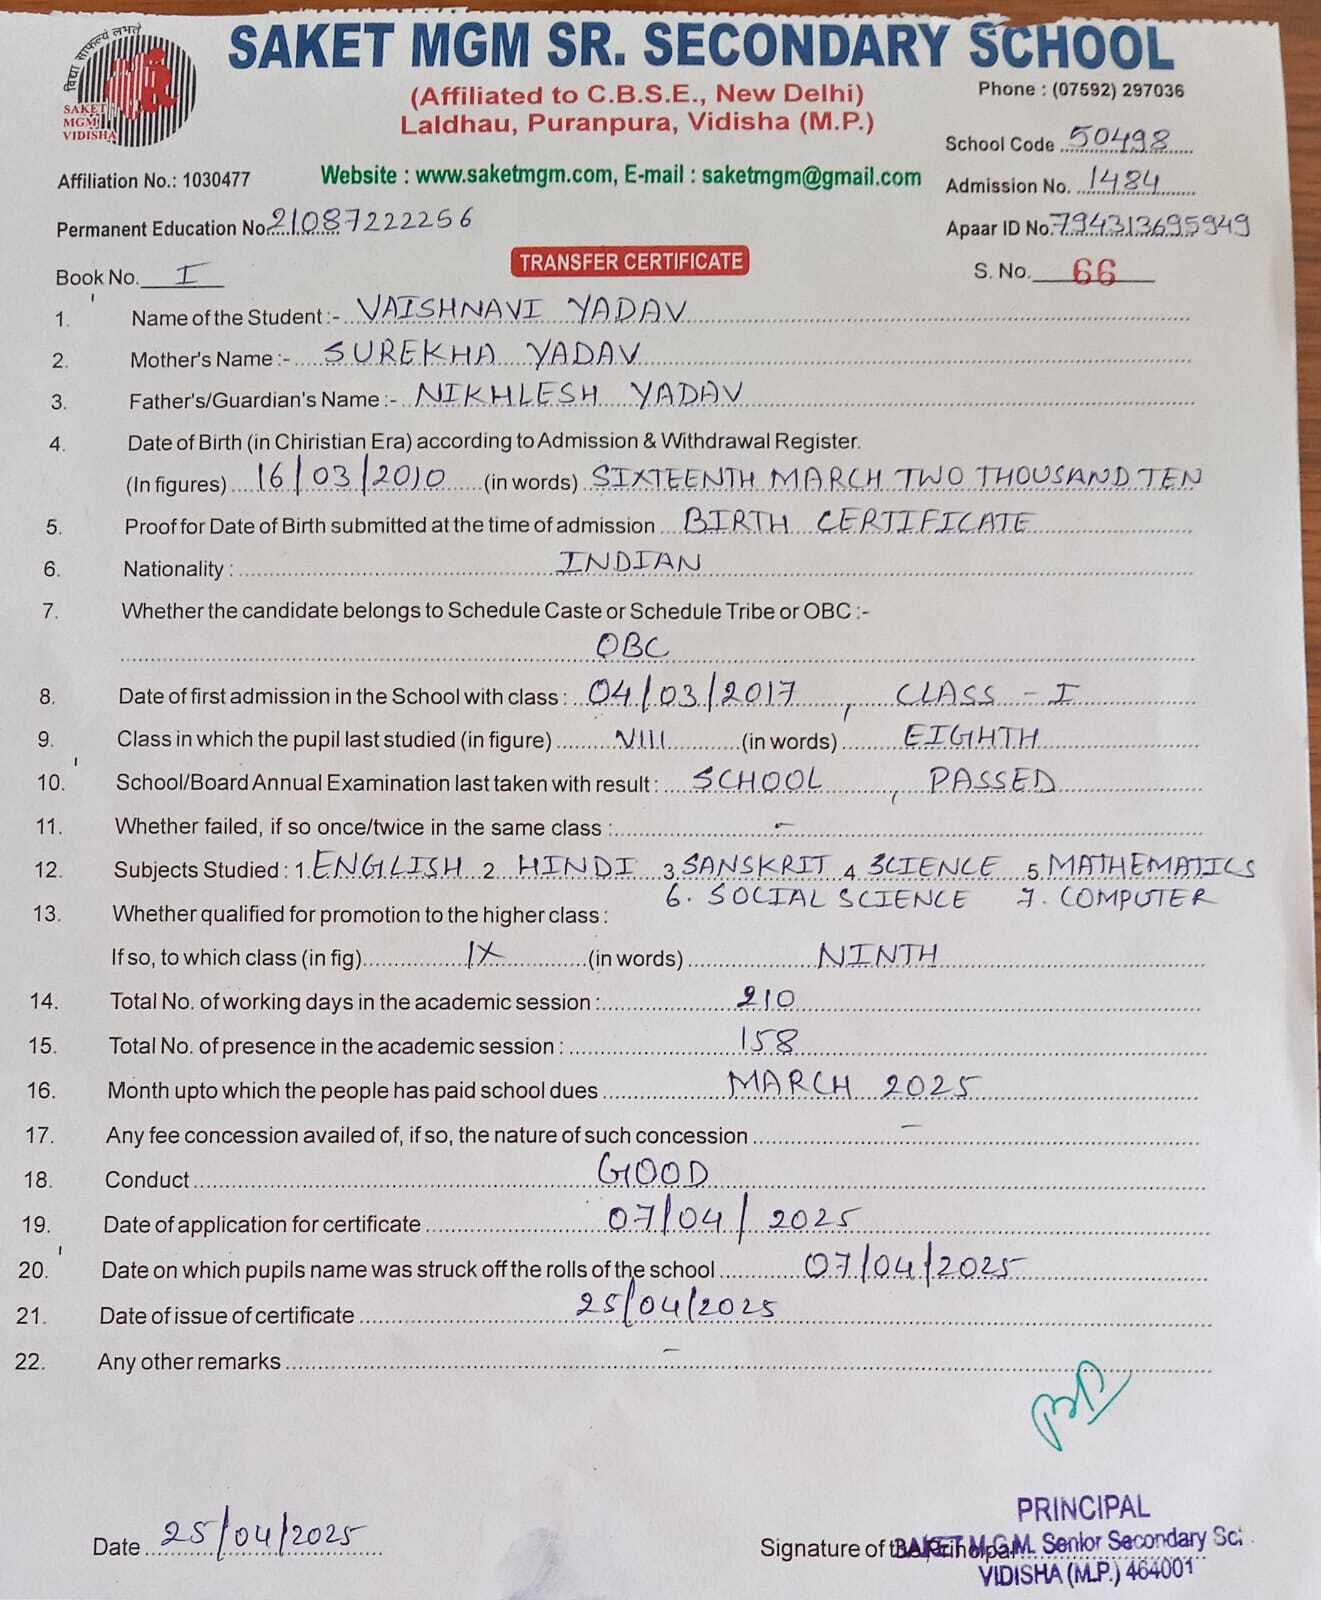 विद्या साफल्यं लभते
SAKET
MGM
VIDISHA
SAKET MGM SR. SECONDARY SCHOOL
(Affiliated to C.B.S.E., New Delhi)
Phone : (07592) 297036
Laldhau, Puranpura, Vidisha (M.P.)
School Code 50498
Affiliation No.: 1030477
Website : www.saketmgm.com, E-mail : saketmgm@gmail.com
Admission No. 1484
Permanent Education No. 21087222256
Apaar ID No. 794313695949
Book No. I
TRANSFER CERTIFICATE
S. No. 66
1. Name of the Student :- VAISHNAVI YADAV
2. Mother's Name :- SUREKHA YADAV
3. Father's/Guardian's Name :- NIKHLESH YADAV
4. Date of Birth (in Chiristian Era) according to Admission & Withdrawal Register.
(In figures) 16/03/2010 (in words) SIXTEENTH MARCH TWO THOUSAND TEN
5. Proof for Date of Birth submitted at the time of admission BIRTH CERTIFICATE
6. Nationality : INDIAN
7. Whether the candidate belongs to Schedule Caste or Schedule Tribe or OBC :-
OBC
8. Date of first admission in the School with class : 04/03/2017, CLASS - I
9. Class in which the pupil last studied (in figure) VIII (in words) EIGHTH
10. School/Board Annual Examination last taken with result : SCHOOL, PASSED
11. Whether failed, if so once/twice in the same class : -
12. Subjects Studied : 1. ENGLISH 2 HINDI 3 SANSKRIT 4 SCIENCE 5 MATHEMATICS
6. SOCIAL SCIENCE 7. COMPUTER
13. Whether qualified for promotion to the higher class :
If so, to which class (in fig) IX (in words) NINTH
14. Total No. of working days in the academic session : 210
15. Total No. of presence in the academic session : 158
16. Month upto which the people has paid school dues MARCH 2025
17. Any fee concession availed of, if so, the nature of such concession -
18. Conduct GOOD
19. Date of application for certificate 07/04/2025
20. Date on which pupils name was struck off the rolls of the school 07/04/2025
21. Date of issue of certificate 25/04/2025
22. Any other remarks -
PRINCIPAL
Date 25/04/2025
Signature of the Principal
SAKET M.G.M. Senior Secondary Sc
VIDISHA (M.P.) 464001